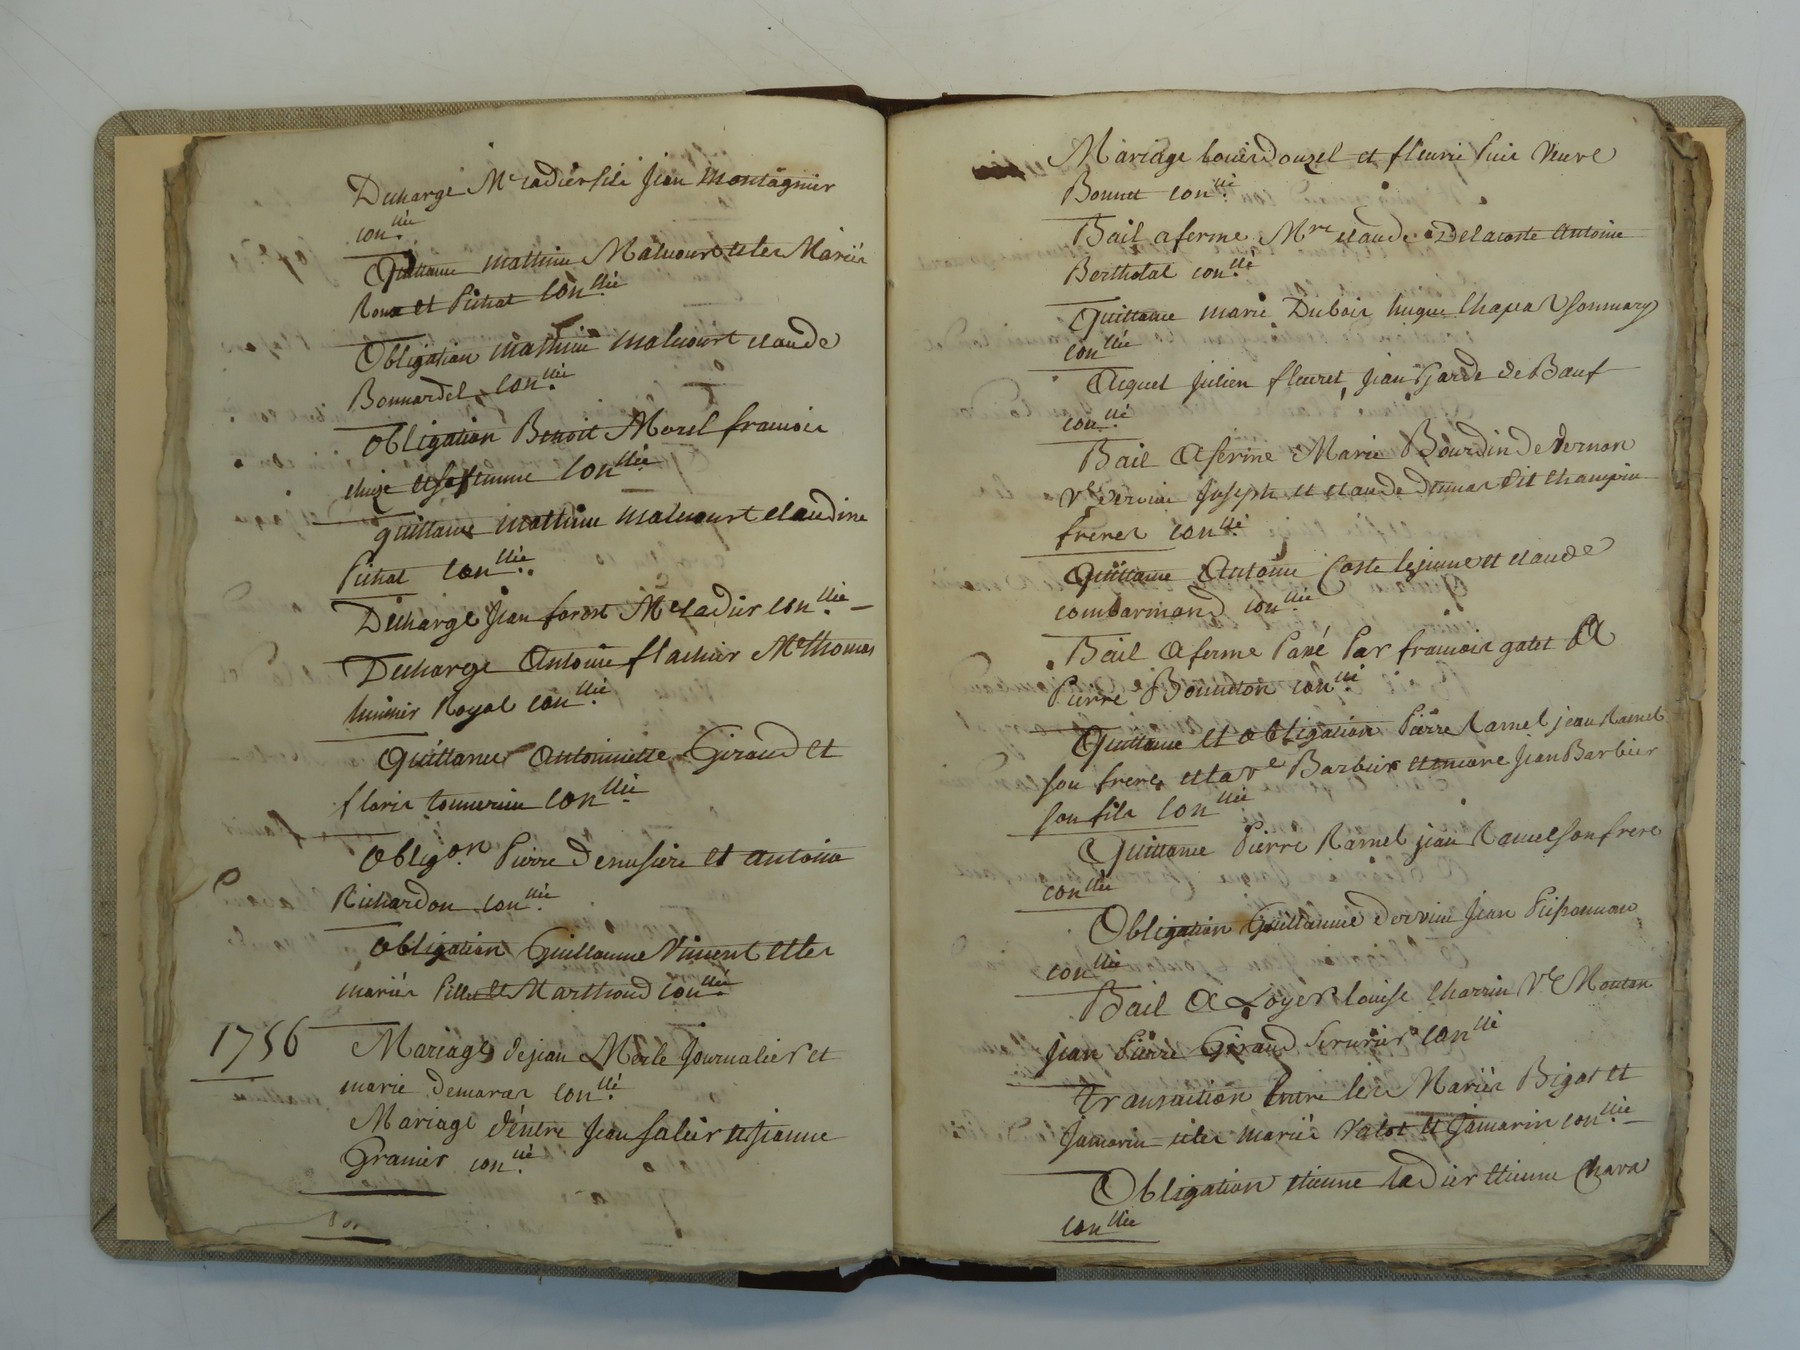 Decharge Me cadier fils Jean Montagnier
conllée
Quittance mathieu Malacourt et les Mariés
Roux et Pichat conllée
Obligation mathieu malacourt claude
Bonnardel conllée
obligation Benoit Morel francois
et sa femme conllée
quittance mathieu malacourt claudine
Pichat conllée
Decharge Jean forest Me cadier conllée
Decharge Antoine flachier Me thomas
huissier Royal conllée
Quittance Antoinette Giraud et
conllée
Oblig.on Pierre et antoine
Richardon conllée
obligation Guillaume Vincent et les
mariés Pillet et Marthoud conllée
1756
Mariage de jean Merle Journalier et
marie demaras conllé
Mariage d'entre Jean falcir et jeanne
Granier conllé
Mariage louis douzel et fleurie veuve
Bonnet conllé
Bail aferme Mre claude Delacoste Antoine
Bertholat conllé
Quittance marie Dubois hugue
conllée
Aquet julien fleuret jean Garde de Bœuf
conllé
Bail Aferme Marie Bourdin de vernon
Ve dervieu Joseph et claude dumas dit
freres conllé
Quittance Antoine Coste lejeune et claude
combarmond conllée
Bail Aferme Passé Par francois galet A
Pierre conllé
Quittance et obligation Pierre Ramel jean Ramel
son frere et la ve Barbier encore Jean Barbier
son fils conllée
Quittance Pierre Ramel jean Ramel son frere
conllée
Obligation Guillaume dervieu Jean
conllée
Bail A Loyer louise charrin Ve Moutan
Jean Pierre Giraud Serurier conllé
transaction Entre les Mariés Bigot et
Jamarin et les mariés Valot et Jamarin conllée
Obligation etienne cadier etienne Chara
conllée